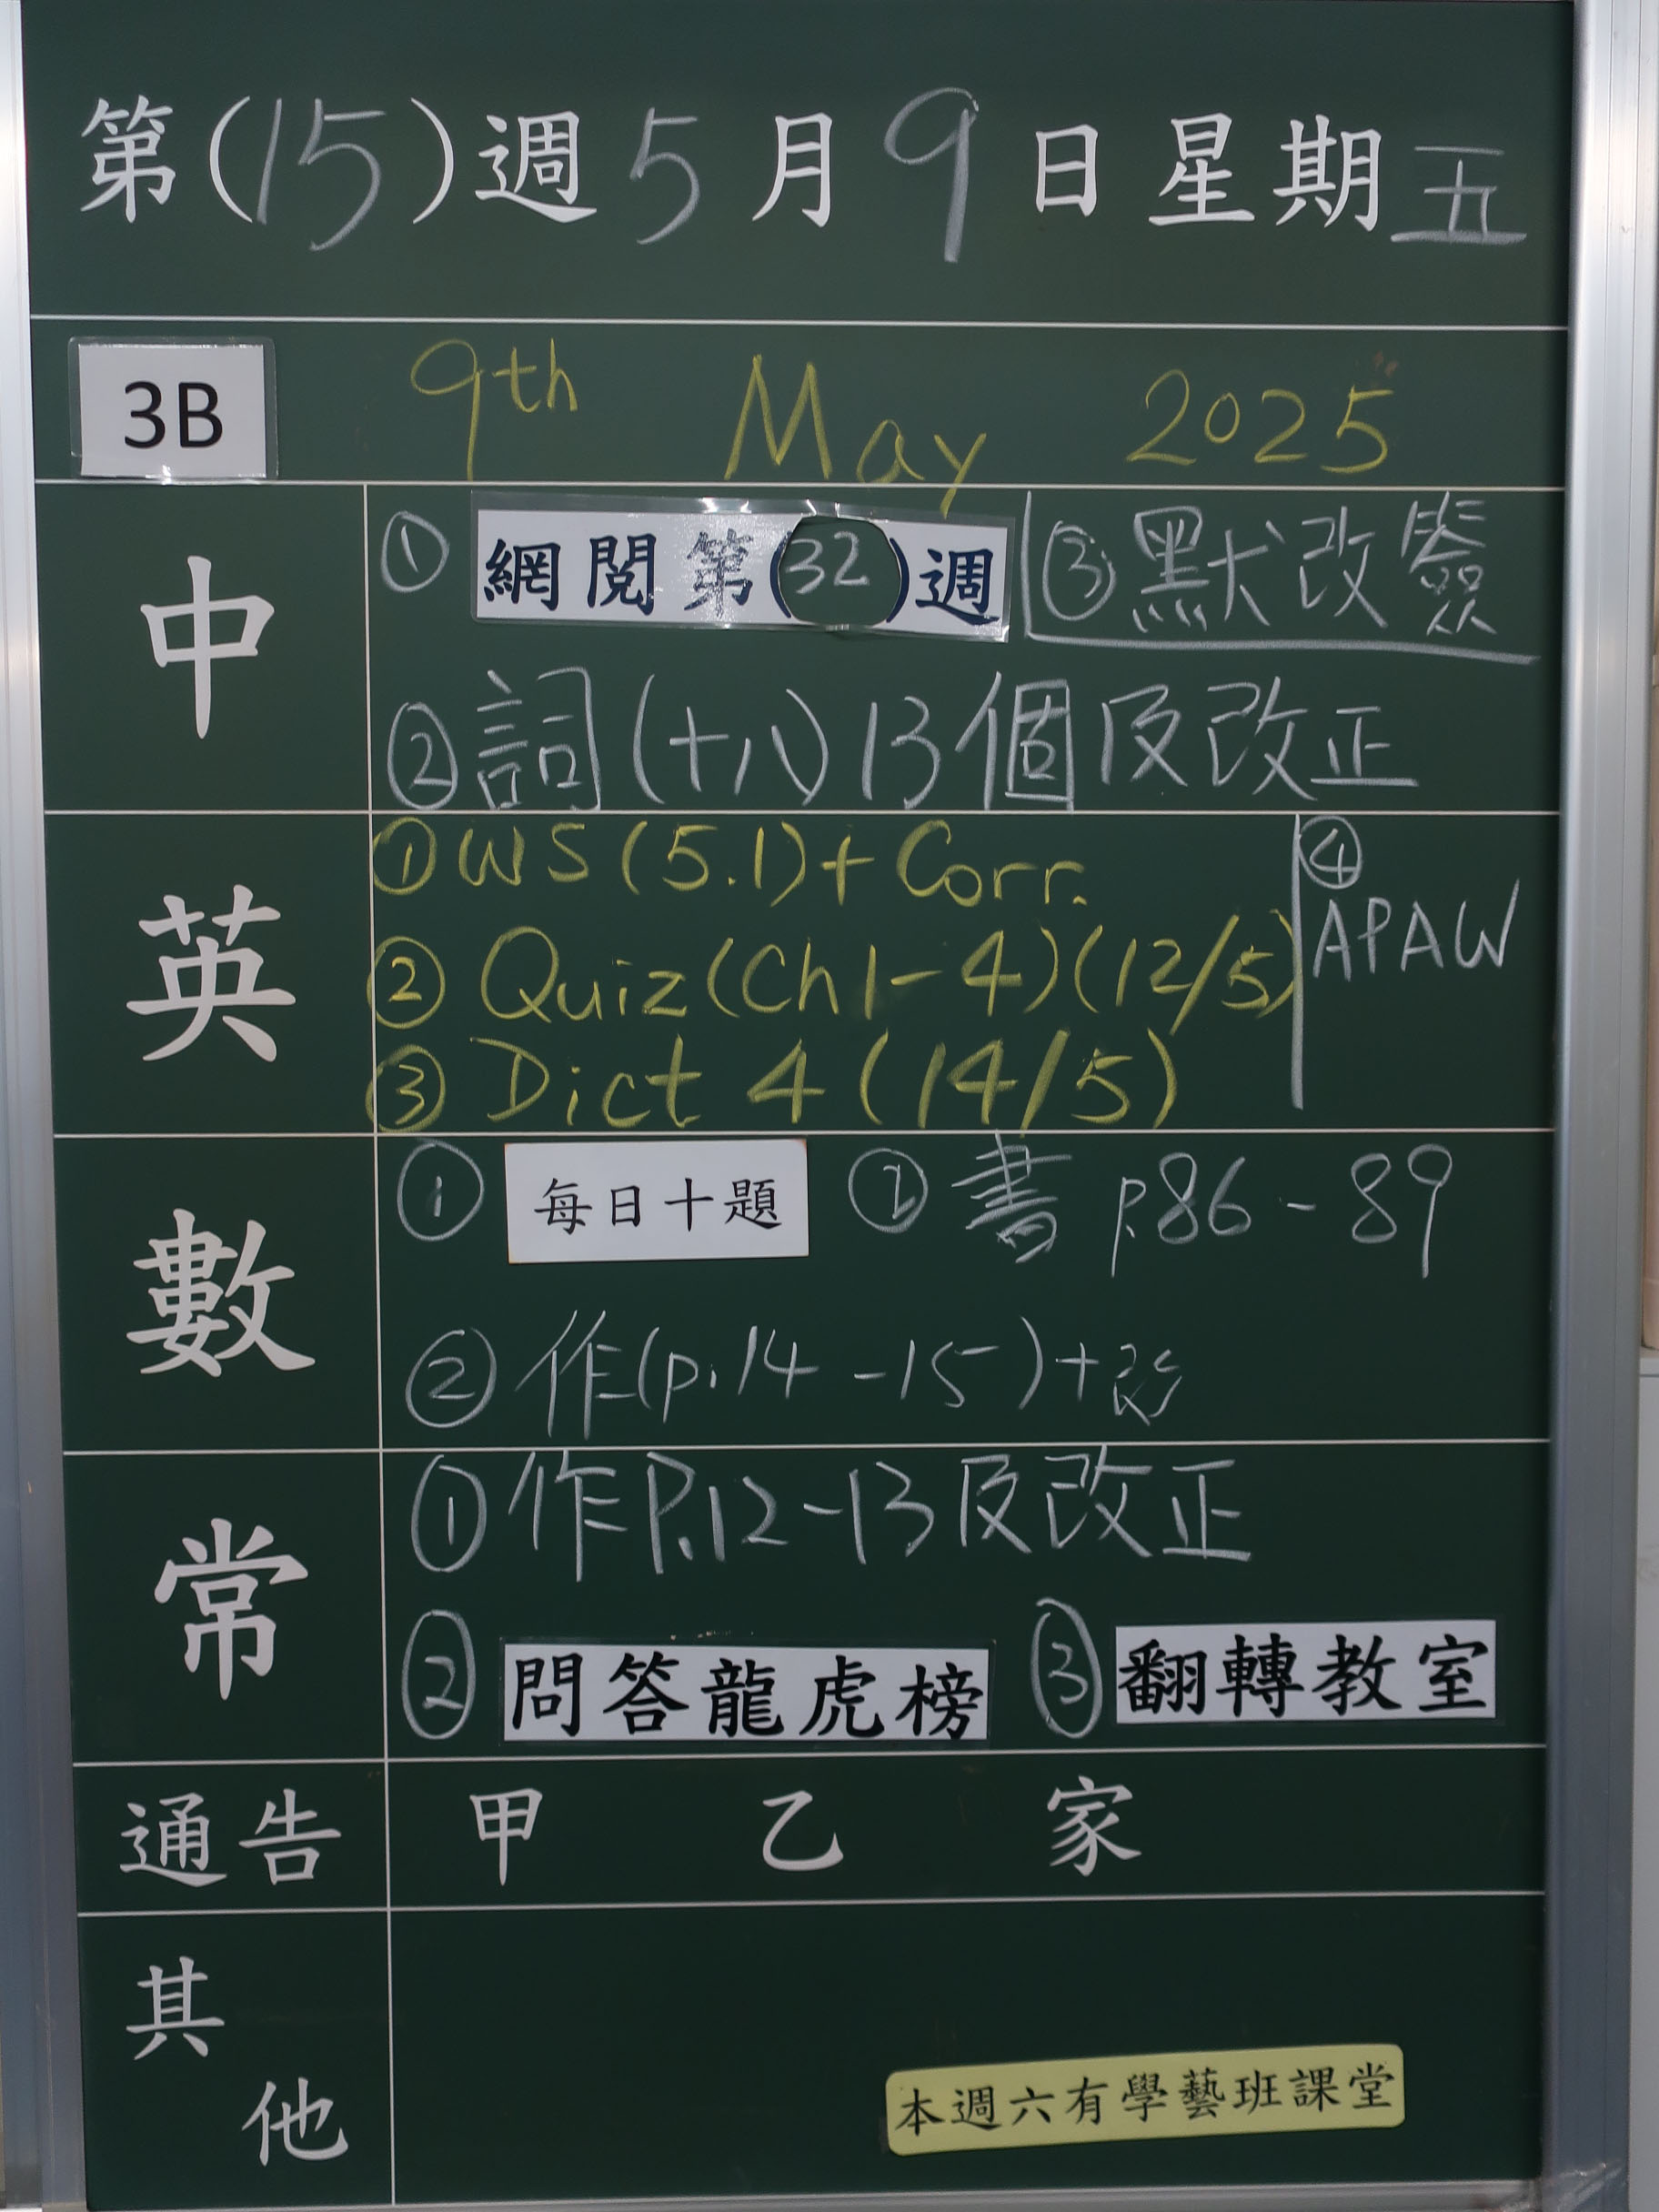 第(15)週5月9日星期五
3B 9th May 2025
中
① 網閱第(32)週 ③默改簽
②詞(十八)13個及改正
英
①WS(5.1)+Corr. ④APAW
②Quiz(Ch1-4)(12/5)
③Dict 4(14/5)
數
① 每日十題 ② 書 p.86-89
② 作(p.14-15)+改
常
①作P.12-13及改正
② 問答龍虎榜 ③ 翻轉教室
通告 甲 乙 家
其他
本週六有學藝班課堂